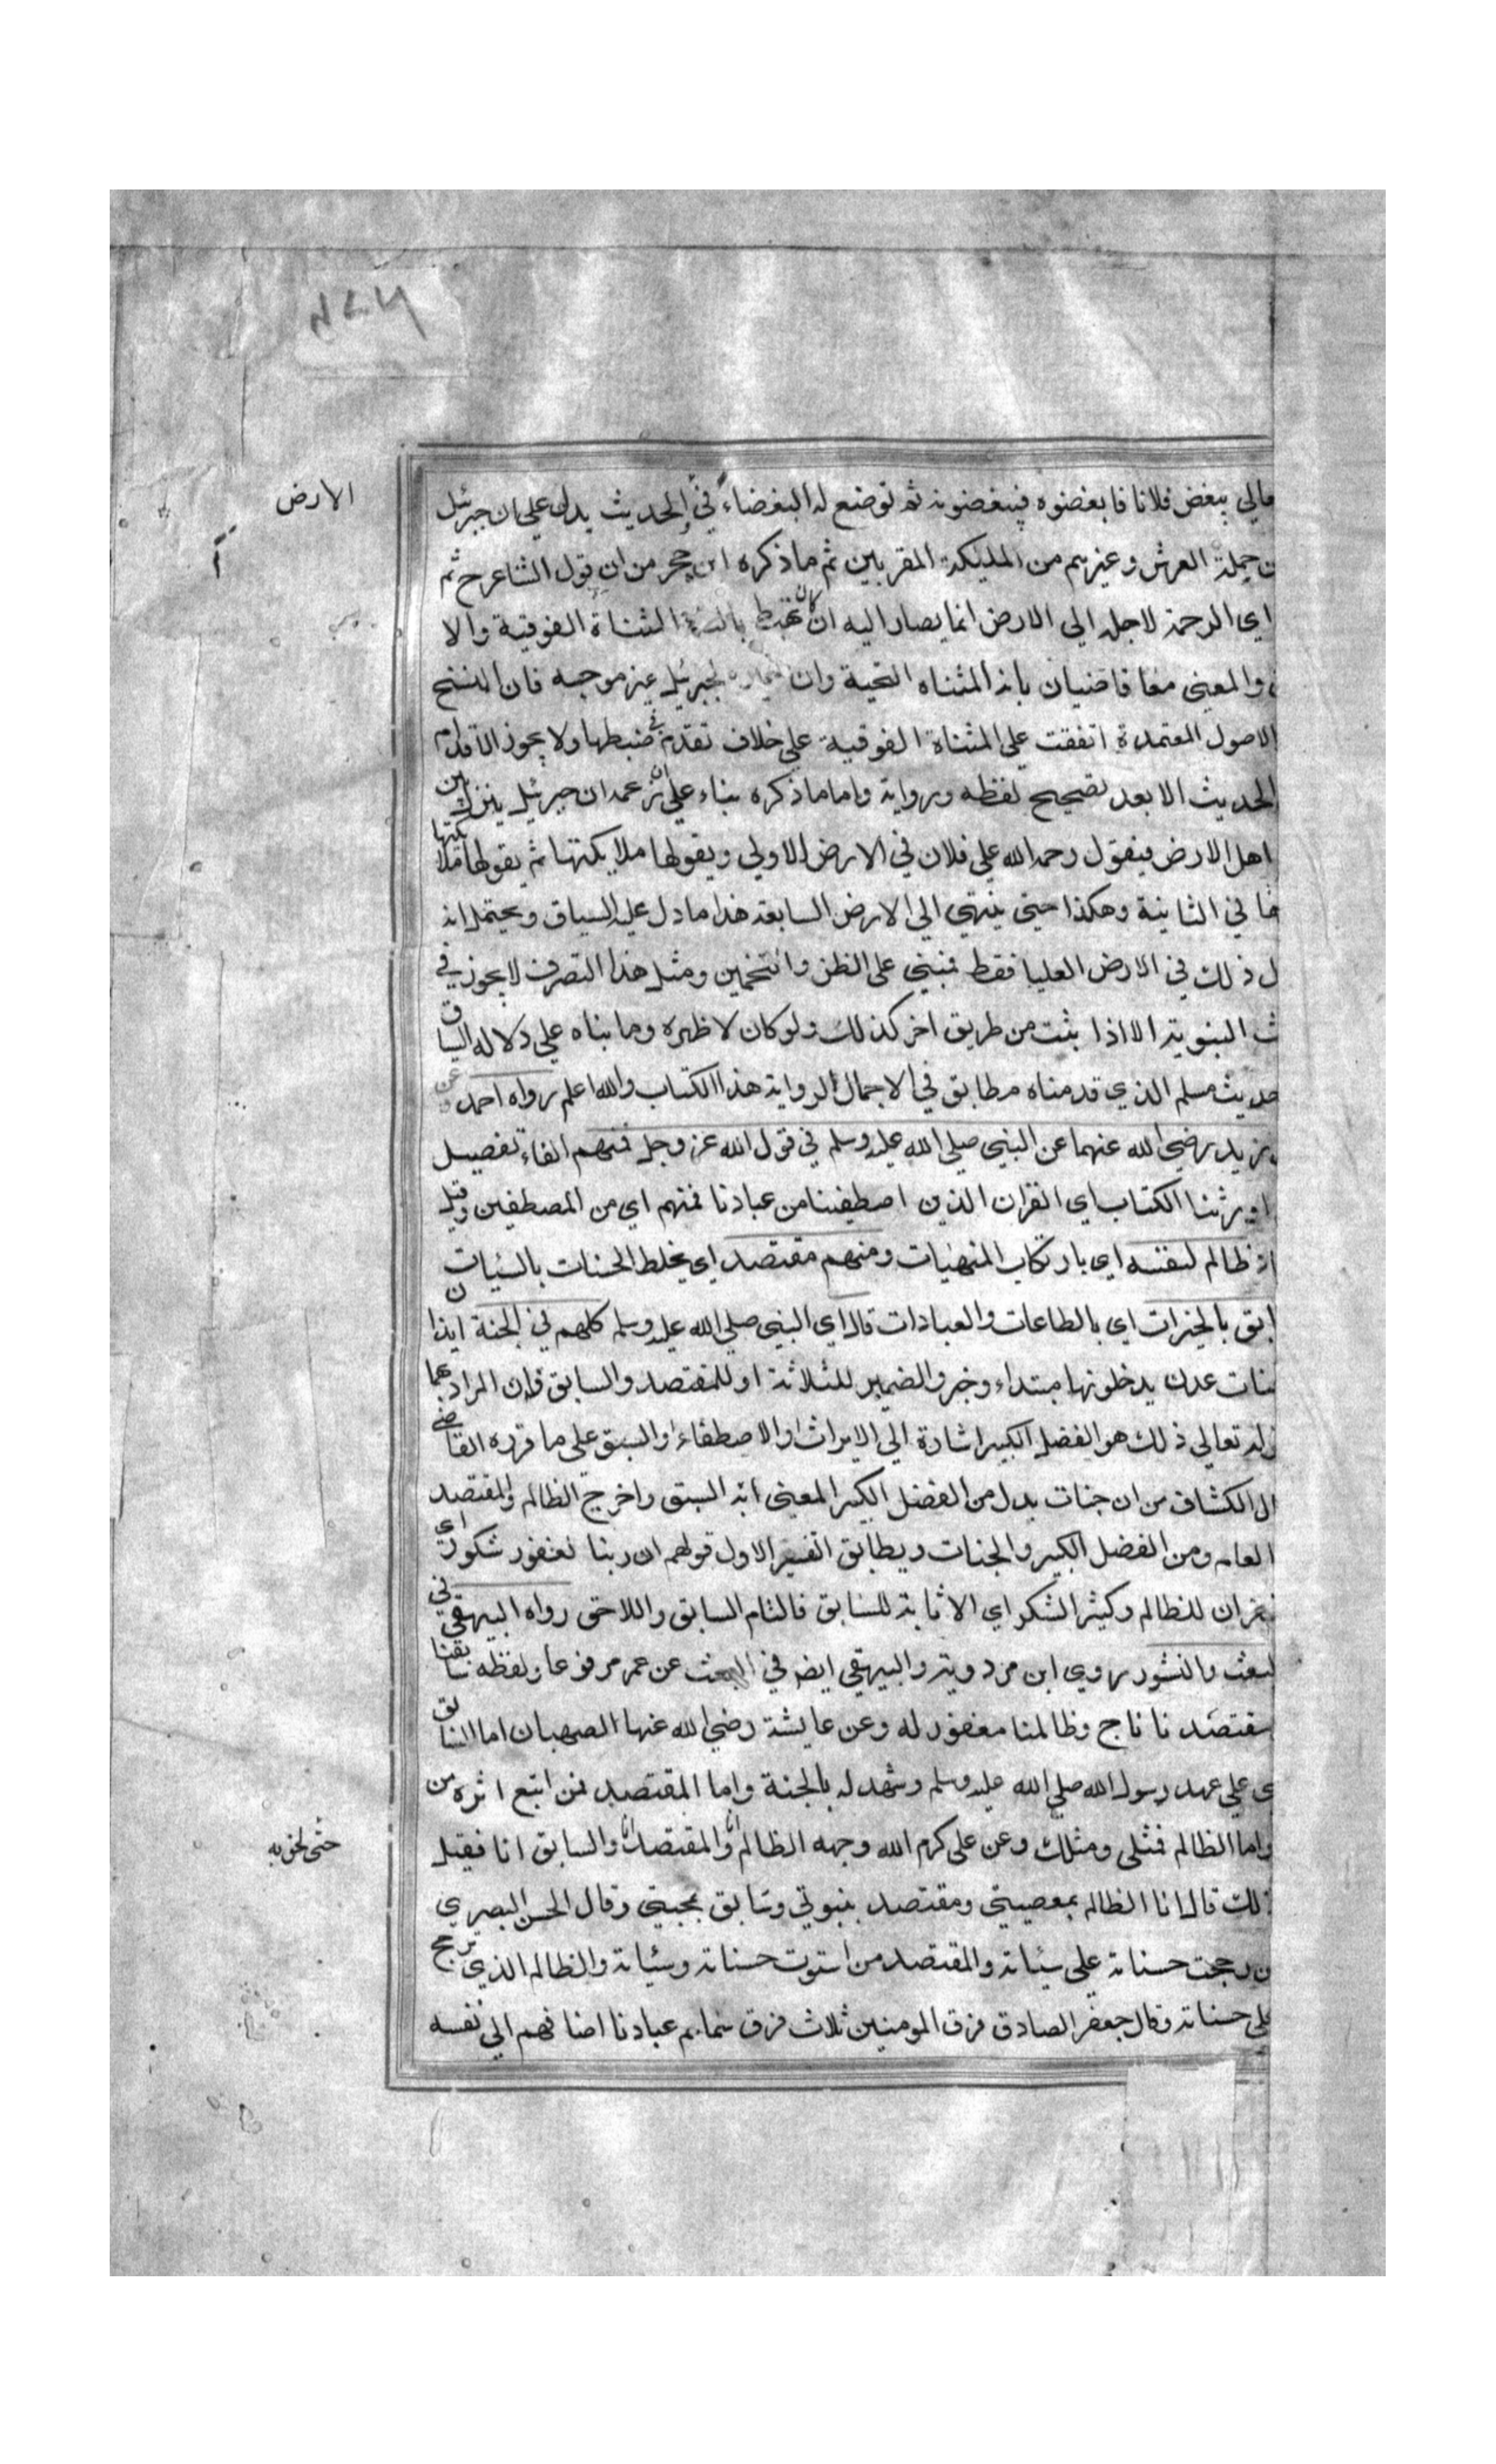 مالي يبغض فلانا فابغضوه فيبغضونه ثم توضع له البغضاء في الحديث يدل علي ان جبرئيل
الارض
ن حملة العرش وغيرهم من المليكة المقربين ثم ما ذكره ابن حجر من ان قول الشاعرح ثم
اي الرحمة لاجله الي الارض انما يصار اليه ان كان المثناة الفوقية والا
والمعني معا قاضيان بانه المثناه التحية وان لجبرئيل غير موجبه فان النسخ
الاصول المعتمدة اتفقت علي المثناة الفوقية علي خلاف تقدم في ضبطها ولا يجوز الاقدام
الحديث الا بعد تصحيح لفظه ورواية واما ما ذكره بناء علي ان جبرئيل ينزل بين
اهل الارض فيقول رحمه الله علي فلان في الارض الاولي ويقولها ملايكتها ثم يقولها ملايكتها
ها في الثانية وهكذا حتي ينتهي الي الارض السابعة هذا ما دل عليه السياق ويحتمل انه
ل ذلك في الارض العليا فقط فبني على الظن والتخمين ومثل هذا التصرف لا يجوز في
ث النبوية الا اذا ثبت من طريق اخر كذلك ولو كان لا ظهره وما بناه علي دلاله السياق
حديث مسلم الذي قدمناه مطابق في الاجمال لرواية هذا الكتاب والله اعلم رواه احمد وعن
بن زيد رضي الله عنهما عن النبي صلي الله عليه وسلم في قول الله عز وجل فمنهم الفاء تفصيل
اورثنا الكتاب اي القران الذين اصطفينا من عبادنا فمنهم اي من المصطفين وقيل
ظالم لنفسه اي بارتكاب المنهيات ومنهم مقتصد اي يخلط الحسنات بالسيئات
ابق بالخيرات اي بالطاعات والعبادات قال اي النبي صلي الله عليه وسلم كلهم في الجنة ايذانا
جنات عدن يدخلونها مبتداء وخبر والضمير للثلاثة او للمقتصد والسابق فان المراد بهما
قوله تعالي ذلك هو الفضل الكبير اشارة الي الايراث او الاصطفاء او السبق علي ما قرره القاضي
الى الكشاف من ان جنات بدل من الفضل الكبير المعني انه السبق واخرج الظالم والمقتصد
العام ومن الفضل الكبير والجنات ويطابق التفسير الاول قولهم ان ربنا لغفور شكور اي
غفران للظالم وكثير الشكر اي الاثابة للسابق فالتام السابق واللاحق رواه البيهقي في
البعث والنشور روي ابن مردويه والبيهقي ايضا في البعث عن عمر مرفوعا ولفظه سابقنا
مقتصدنا ناج وظالمنا مغفور له وعن عايشة رضي الله عنها اما السابق
علي عهد رسول الله صلي الله عليه وسلم وشهد له بالجنة واما المقتصد فمن اتبع اثره من
حتى لحق به
واما الظالم فمثلي ومثلك وعن علي كرم الله وجهه الظالم انا والمقتصد انا والسابق انا فقيل
ذلك قال انا الظالم بمعصيتي ومقتصد بتبوتي وسابق بمحبتي وقال الحسن البصري
ن رجحت حسناته علي سيئاته والمقتصد من استوت حسناته وسيئاته والظالم الذي ترجح
علي حسناته وقال جعفر الصادق فرق المومنين ثلاث فرق سماهم عبادنا اضافهم الي نفسه